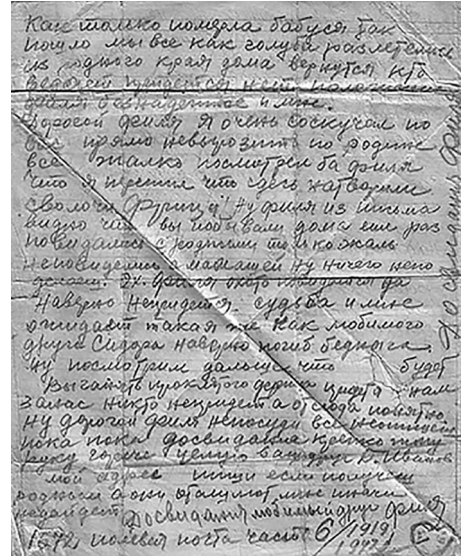 Как только померла бабуся так
пошло мы все как голуби разлетелись
из родного края дома вернутся кто
придется нет
и мне.
Дорогой филя я очень соскучал по
вас прямо невыразить по родине
все жалко посмотрел ба филя
что я пережил что здесь натворили
сволочи фрицы! Ну филя из письма
видно что вы побывали дома еш раз
повидались с родными только жаль
неповиделись с мамашей ну ничего непо
делаеш. Эх. филя охото повидатся да
наверно непридется судьба и мне
ожидает такая же как любимого
друга Сидора наверно погиб бедняга.
Ну посмотрим дальше что будет
нам
запас никто непридет а отсюда понятно
ну дорогой филя непосуди все
пока пока досвидание крепко жму
руку горячо целую ваш друг Иванов
мой адрес пиши если получиш
родным а они отошлют мне иначе
недойдет
Досвидания любимый друг филя
полевая почта часть 6/1919
До свидания филя